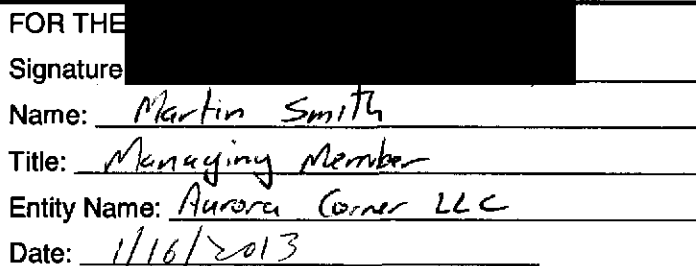 FOR THE
Signature
Name: Martin Smith
Title: Managing Member
Entity Name: Aurora Corner LLC
Date: 1/16/2013